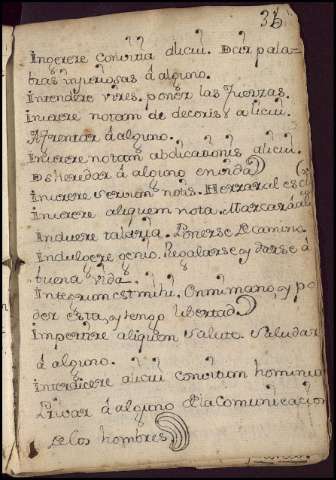 35
Ingerere convitia alicui. Dar pala-
bras injuriosas á alguno.
Intendere vires. poner las fuerzas.
Inurere notam de decoris alicui.
Afrentar á alguno.
Inurere notam abdicationis alicui.
Desheredar á alguno en vida
Inurere servum notis. Herrar al escl
Inurere aliquem nota. Marcar á
Induere talaria. Ponerse de camino.
Indulgere genio. Regalarse y darse á
buena vida.
Integrum est mihi. En mi mano, y po
der esta, y tengo libertad.
Impertire aliquem salute. Saludar
á alguno.
Interdicere alicui convitum hominum
Privar á alguno de la comunicacion
de los hombres.